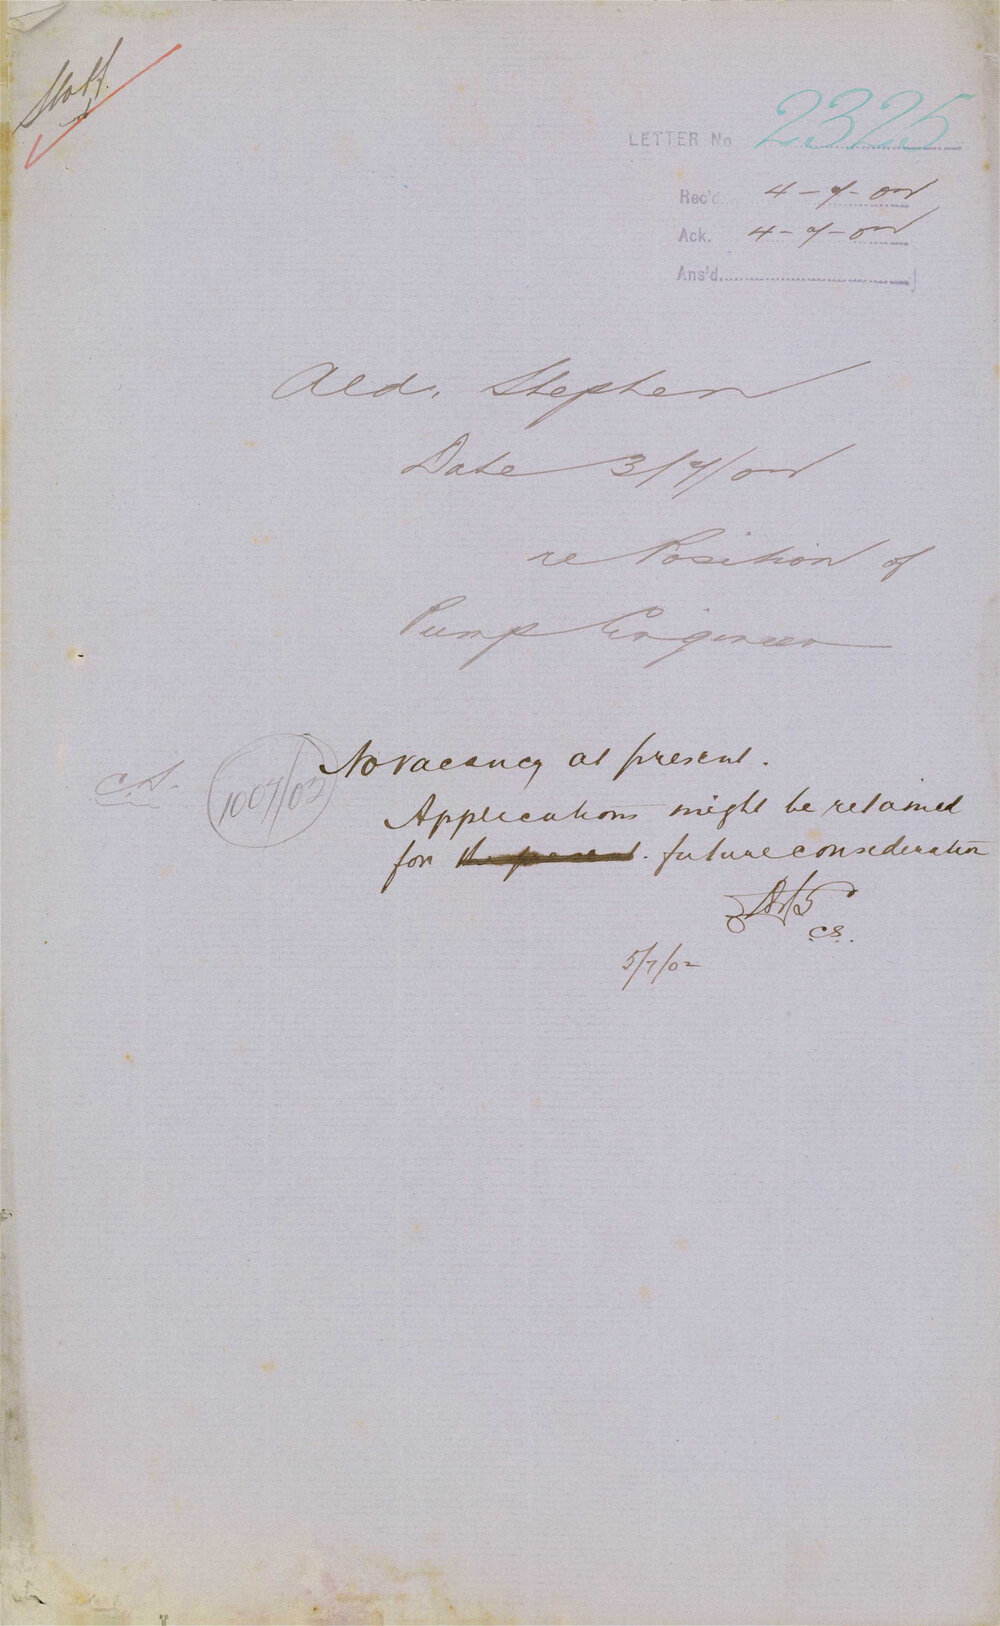 Staff.
LETTER No 2325
Rec'd. 4-7-02
Ack. 4-7-02
Ans'd.
Ald. Stephen
Date 3/7/02
re Position of
Pump Engineer
C.S. 1007/02 No vacancy at present.
Applications might be retained
for the present. future consideration
C.S.
5/7/02